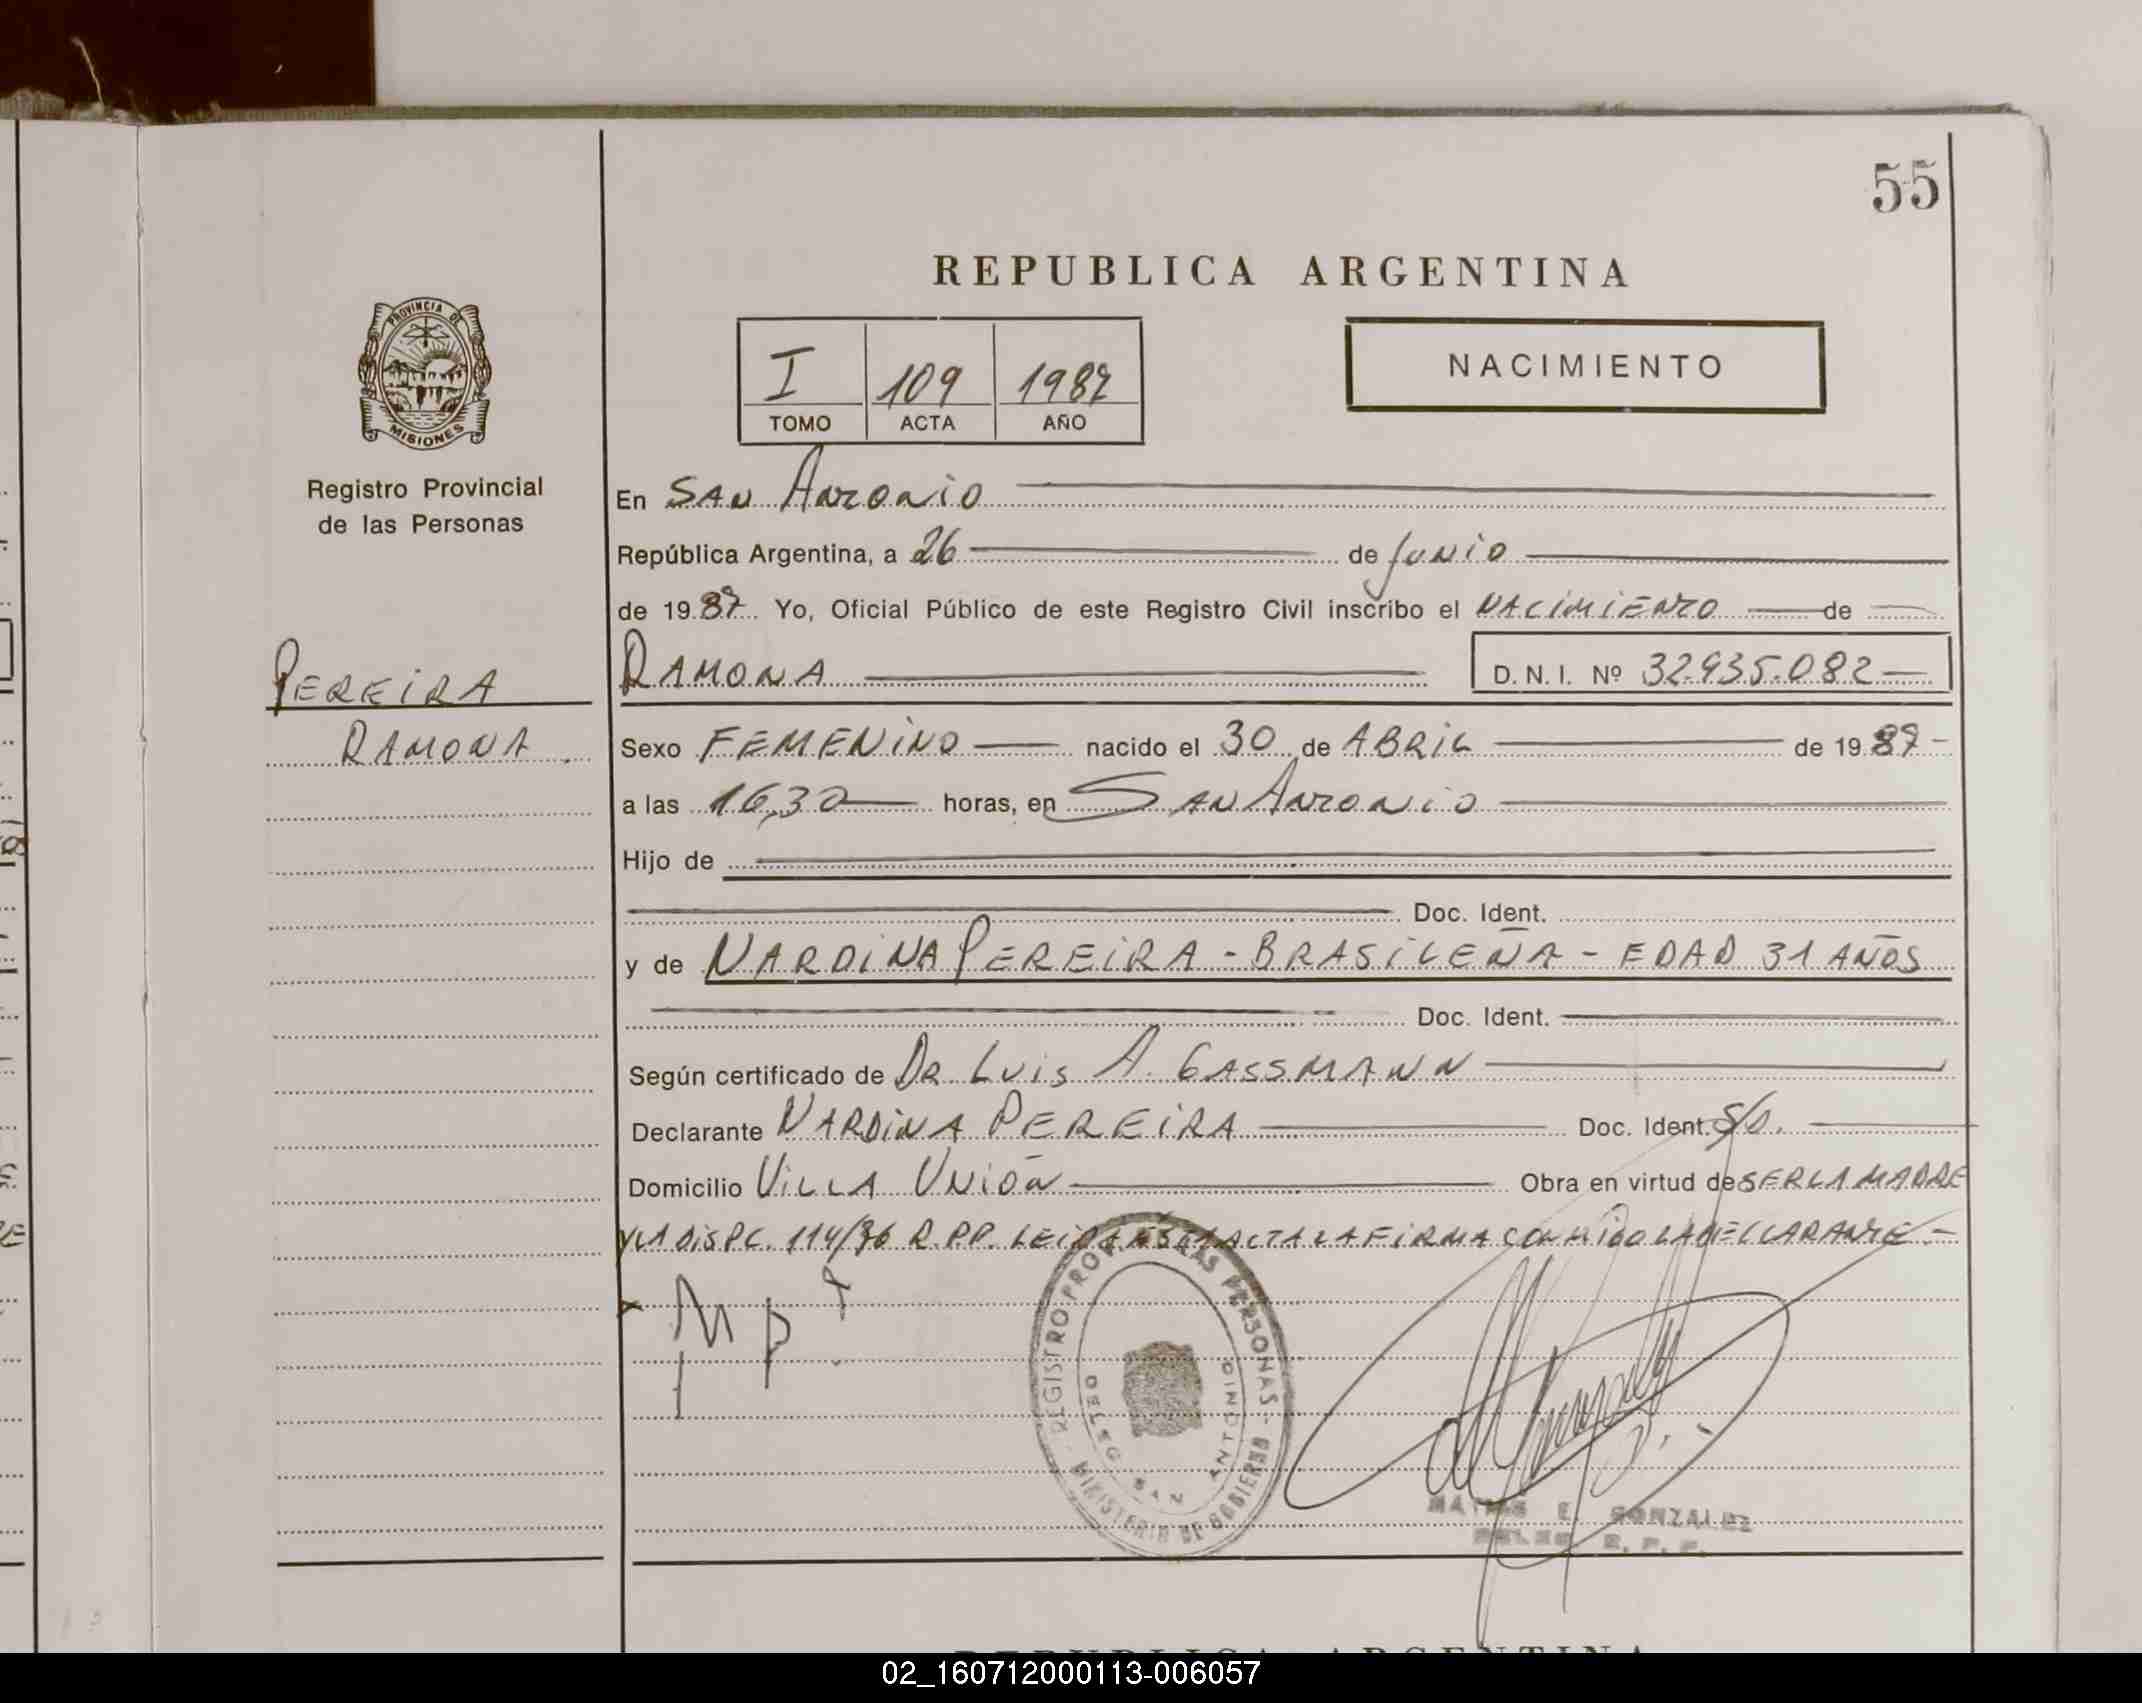 55
REPUBLICA ARGENTINA
PROVINCIA DE
MISIONES
I 109 1987
TOMO ACTA AÑO
NACIMIENTO
Registro Provincial
de las Personas
En SAN ANTONIO
República Argentina, a 26 de JUNIO
de 1987 Yo, Oficial Público de este Registro Civil inscribo el NACIMIENTO de
PEREIRA
RAMONA
RAMONA D. N. I. Nº 32.935.082
Sexo FEMENINO nacido el 30 de ABRIL de 1987
a las 16,30 horas, en SAN ANTONIO
Hijo de
Doc. Ident.
y de NARDINA PEREIRA - BRASILEÑA - EDAD 31 AÑOS
Doc. Ident.
Según certificado de DR LUIS A. GASSMANN
Declarante NARDINA PEREIRA Doc. Ident. S/D.
Domicilio VILLA UNIÓN Obra en virtud de SER LA MADRE
Y LA DISPC. 114/86 R.P.P. LEIDA ESTA ACTA LA FIRMA CONMIGO LA DECLARANTE -
REGISTRO PROV. DE LAS PERSONAS - MINISTERIO DE GOBIERNO
DELEG. SAN ANTONIO
MATIAS E. GONZALEZ
REPUBLICA ARGENTINA
02_160712000113-006057